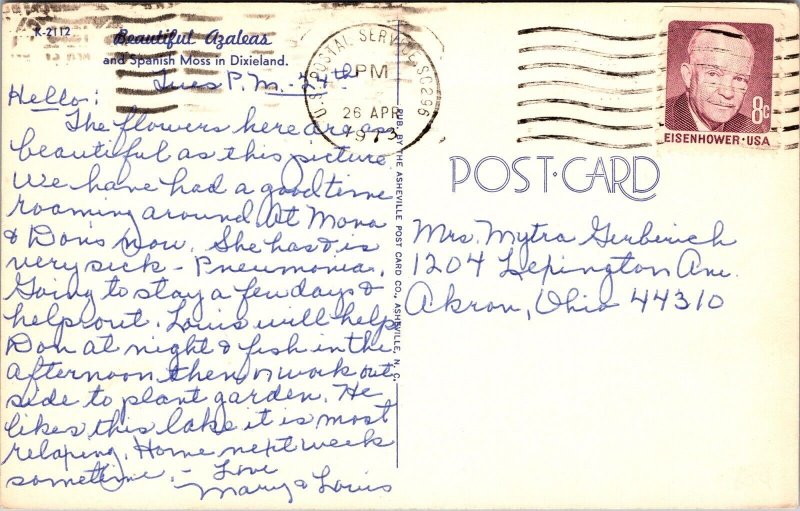 K-2112
Beautiful Azaleas
and Spanish Moss in Dixieland.
Tues P.M. 24th
Hello:
The flowers here are as
beautiful as this picture
We have had a good time
roaming around. At Mona
& Don's now. She has & is
very sick - Pneumonia.
Going to stay a few days &
help out. Louis will help
Don at night & fish in the
afternoon then work out
side to plant garden. He
likes this lake it is most
relaxing. Home next week
sometime. - Love
Mary & Louis
PUB. BY THE ASHEVILLE POST CARD CO., ASHEVILLE, N. C.
U.S. POSTAL SERVICE, SC 296
PM
26 APR
1973
8c
EISENHOWER·USA
POST·CARD
Mrs. Mytra Gerberich
1204 Lexington Ave.
Akron, Ohio 44310